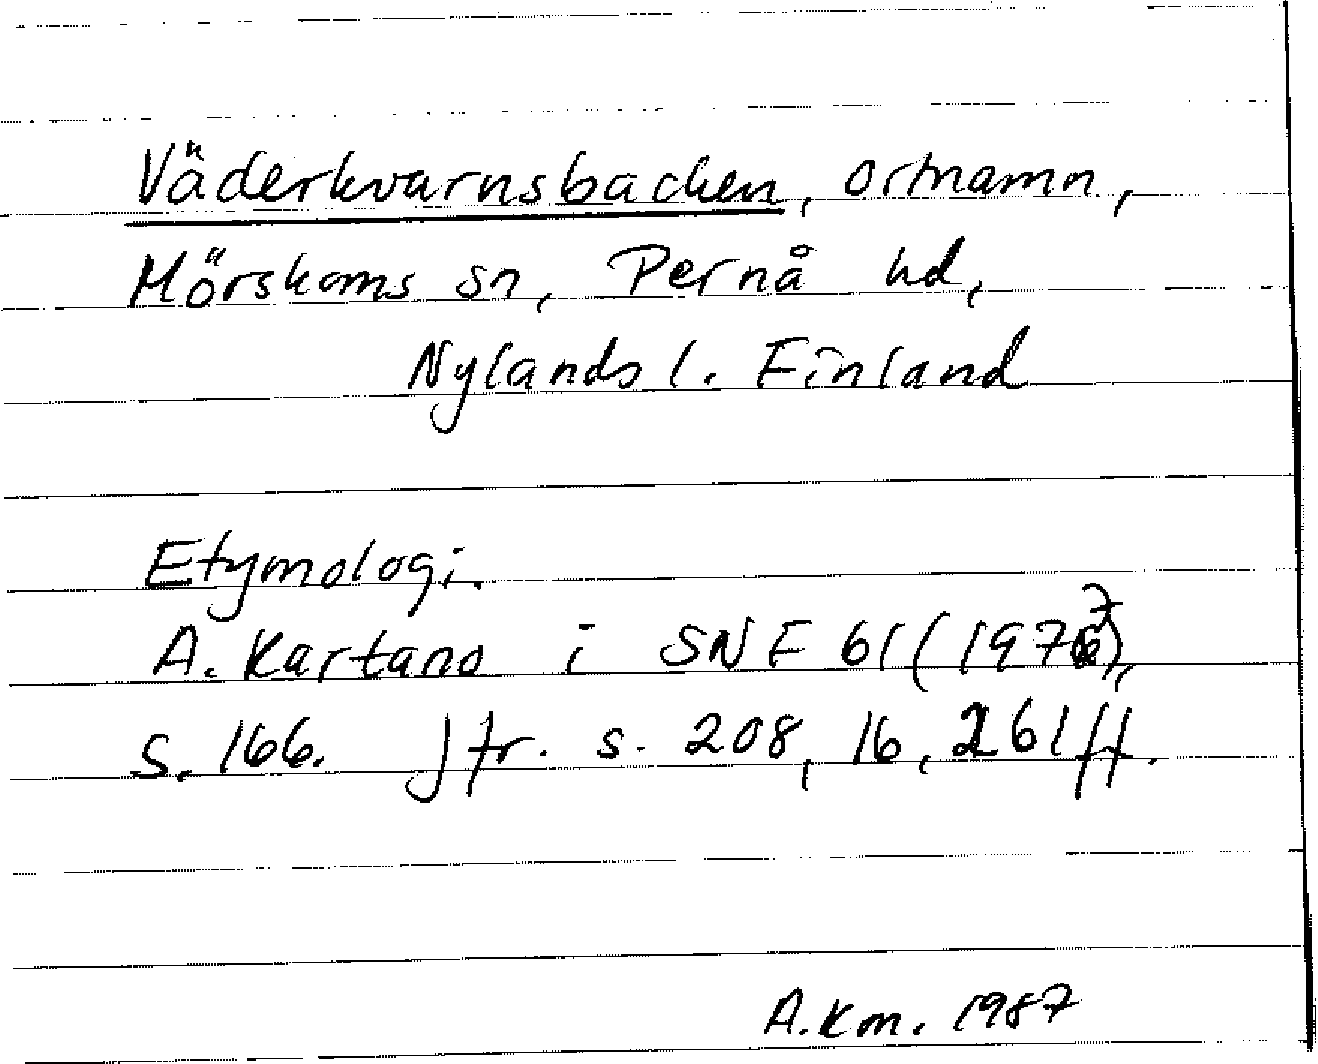 Väderkvarnsbacken, ortnamn,
Mörskoms sn, Pernå hd,
Nylands l. Finland
Etymologi.
A. Kartano i SNF 61 (1977),
s. 166. Jfr. s. 208, 16, 261 ff.
A.Km. 1987